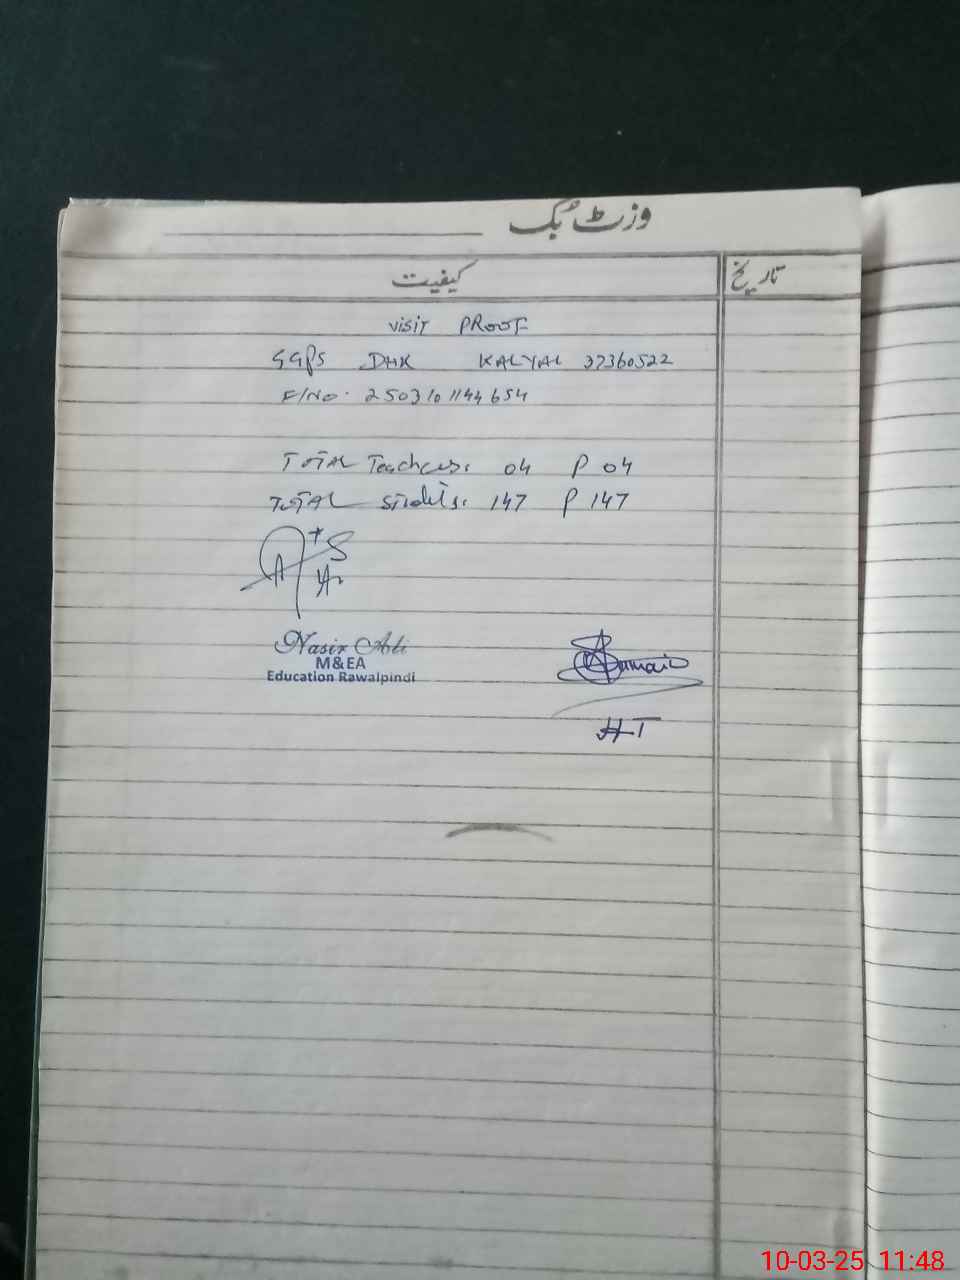 وزٹ بک
کیفیت
تاریخ
VISIT PROOF
GGPS DHK KALYAL 37360522
F/NO. 2503101144654
TOTAL Teachers: 04 P 04
TOTAL Studets: 147 P 147
Nasir Ali
M&EA
Education Rawalpindi
HT
10-03-25 11:48